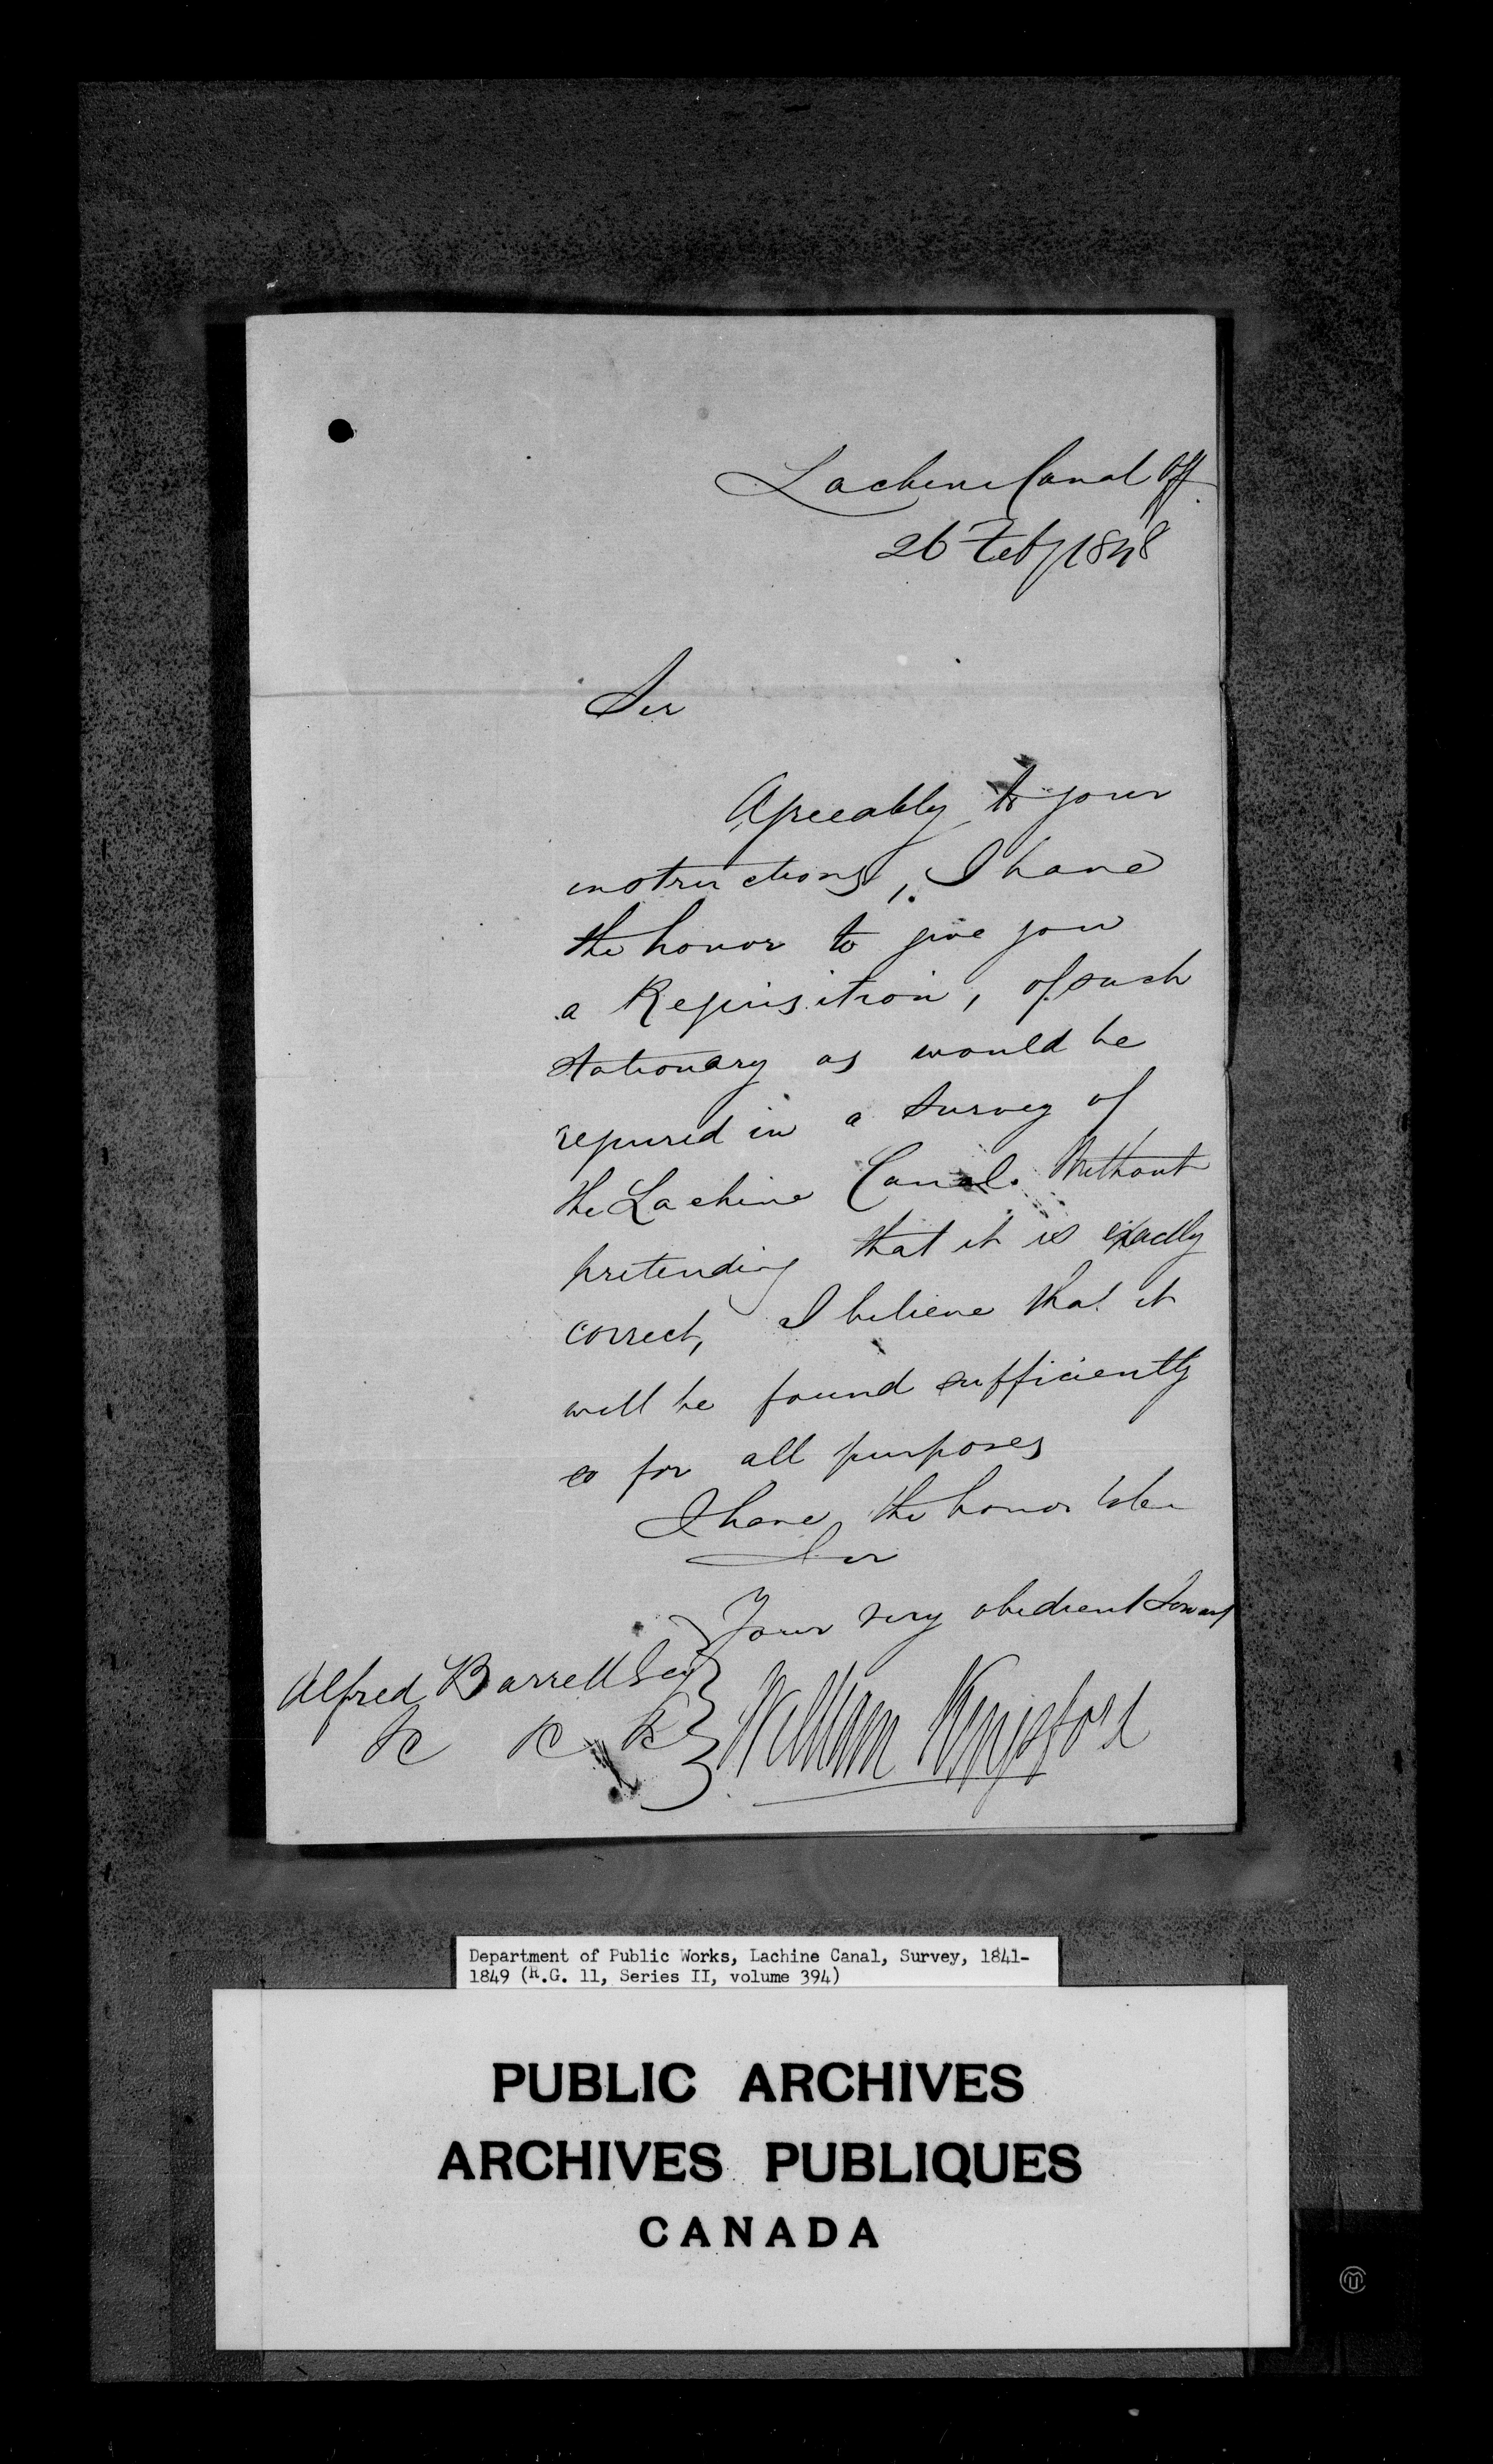 Lachine Canal Off.
26 Feby 1848
Sir
Agreeably to your
instructions, I have
the honor to give you
a Requisition, of such
stationary as would be
required in a survey of
the Lachine Canal. Without
pretending that it is exactly
correct, I believe that it
will be found sufficiently
so for all purposes
I have the honor to be
Sir
Your very obedient Servant
Alfred Barrett Esq
&c &c &c
William Kingsford
Department of Public Works, Lachine Canal, Survey, 1841-
1849 (R.G. 11, Series II, volume 394)
PUBLIC ARCHIVES
ARCHIVES PUBLIQUES
CANADA